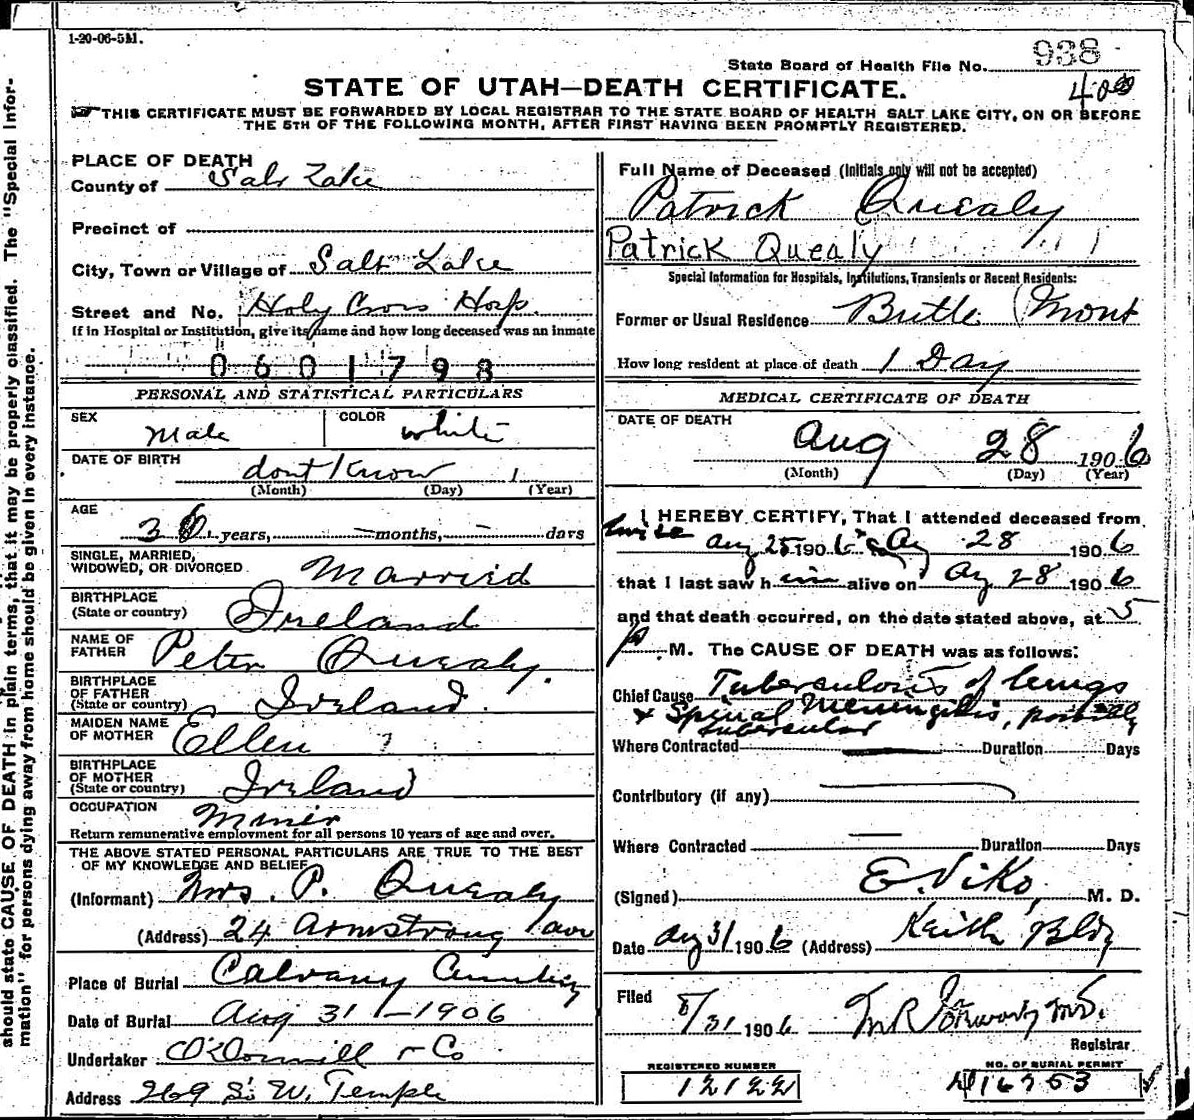 1-20-06-5M.
State Board of Health File No. 938
400
STATE OF UTAH—DEATH CERTIFICATE.
THIS CERTIFICATE MUST BE FORWARDED BY LOCAL REGISTRAR TO THE STATE BOARD OF HEALTH SALT LAKE CITY, ON OR BEFORE
THE 5TH OF THE FOLLOWING MONTH, AFTER FIRST HAVING BEEN PROMPTLY REGISTERED.
should state CAUSE OF DEATH in plain terms, that it may be properly classified. The "Special Infor-
mation" for persons dying away from home should be given in every instance.
PLACE OF DEATH
County of Salt Lake
Precinct of
City, Town or Village of Salt Lake
Street and No. Holy Cross Hosp.
If in Hospital or Institution, give its name and how long deceased was an inmate
0601798
PERSONAL AND STATISTICAL PARTICULARS
SEX Male COLOR white
DATE OF BIRTH dont Know
(Month) (Day) (Year)
AGE
36 years, — months, — days
SINGLE, MARRIED,
WIDOWED, OR DIVORCED Married
BIRTHPLACE
(State or country) Ireland
NAME OF
FATHER Peter Quealy.
BIRTHPLACE
OF FATHER
(State or country) Ireland.
MAIDEN NAME
OF MOTHER Ellen ?
BIRTHPLACE
OF MOTHER
(State or country) Ireland
OCCUPATION Miner
Return remunerative employment for all persons 10 years of age and over.
THE ABOVE STATED PERSONAL PARTICULARS ARE TRUE TO THE BEST
OF MY KNOWLEDGE AND BELIEF
(Informant) Mrs. P. Quealy
(Address) 24 Armstrong ave
Place of Burial Calvary Cemetery
Date of Burial Aug 31 - 1906
Undertaker O'Donnell & Co
Address 269 S. W. Temple
Full Name of Deceased (Initials only will not be accepted)
Patrick Quealy
Patrick Quealy
Special Information for Hospitals, Institutions, Transients or Recent Residents:
Former or Usual Residence Butte Mont
How long resident at place of death 1 Day
MEDICAL CERTIFICATE OF DEATH
DATE OF DEATH
Aug 28 1906
(Month) (Day) (Year)
I HEREBY CERTIFY, That I attended deceased from
twice Aug 25 1906 & Aug 28 1906
that I last saw him alive on Ag 28 1906
and that death occurred, on the date stated above, at 5
P. M. The CAUSE OF DEATH was as follows:
Chief Cause Tuberculosis of lungs
& Spinal Meningitis, possibly
tubercular
Where Contracted — Duration Days
Contributory (if any)
Where Contracted — Duration Days
(Signed) E. Viko, M. D.
Date Aug 31 1906 (Address) Keith Bldg
Filed 8/31 1906 M.D.
Registrar
REGISTERED NUMBER
12122
NO. OF BURIAL PERMIT